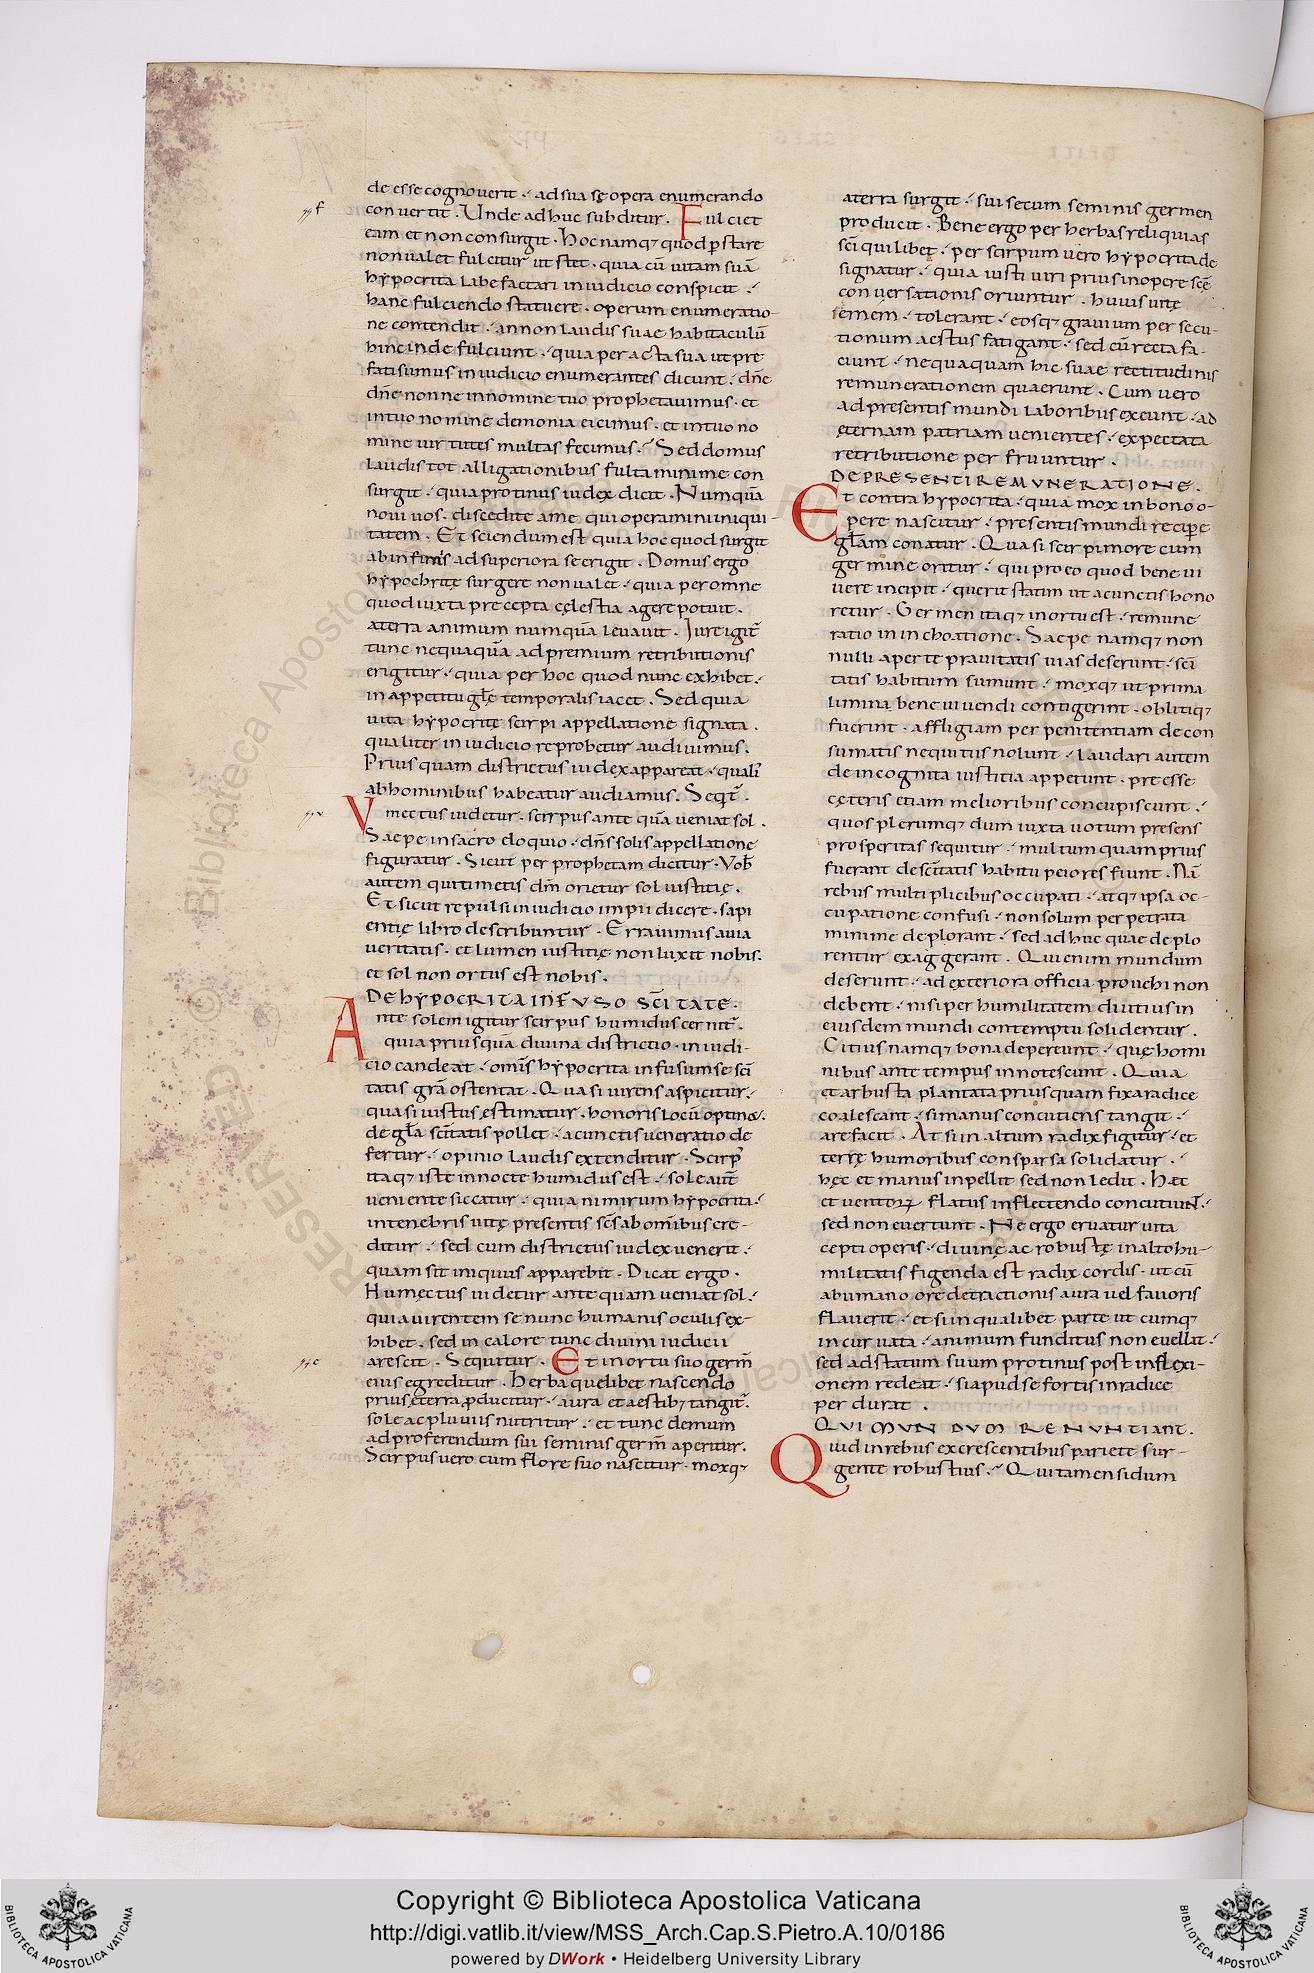 de esse cognoverit ·⁄ ad sua sę opera enumerando
convertit · Unde ad huc subditur · Fulciet
eam et non consurgit · hoc namq; quod p̄stare
non valet fulcitur ut stet · quia cū vitam suā
hẏpocrita labefactari in iudicio conspicit ·⁄
hanc fulciendo statuere · operum enumeratio-
ne contendit ·⁄ an non laudis suae habitaculū
hinc inde fulciunt ·⁄ quia per acta sua ut pre
fati sumus in iudicio enumerantes dicunt ·⁄ dn̄e
dn̄e nonne in nomine tuo prophetavimus · et
in tuo nomine demonia eicimus · et in tuo no
mine virtutes multas fecimus ·⁄ Sed domus
laudis tot alligationibus fulta minime con
surgit ·⁄ quia protinus iudex dicit · Numquā
novi vos · discedite a me qui operamini iniqui-
tatem · Et sciendum est quia hoc quod surgit
ab infimis ad superiora se erigit · Domus ergo
hẏpochritę surgere non valet ·⁄ quia per omne
quod iuxta precepta cęlestia agere potuit ·
a terra animum numquā levavit · Iure igit̄
tunc nequaquā ad premium retributionis
erigitur ·⁄ quia per hoc quod nunc exhibet ·⁄
in appetitu gl̄ę temporalis iacet · Sed quia
vita hẏpocritę scirpi appellatione signata ·
qualiter in iudicio reprobetur audivimus ·
Prius quam districtus iudex appareat ·⁄ qualit̄
ab hominibus habeatur audiamus · Seqt̄ ·
Vmectus videtur · scirpus ante quā veniat sol ·
Saepe in sacro eloquio ·⁄ dn̄s solis appellatione
figuratur · Sicut per prophetam dicitur · Vob̄
autem qui timetis dm̄ orietur sol iustitię ·
Et sicut repulsi in iudicio impii dicere · sapi
entię libro describuntur · Erravimus a via
veritatis · et lumen iustitię non luxit nobis ·
et sol non ortus est nobis ·
DE hẎPOCRITA INFUSO SC̄ITATE ·
Ante solem igitur scirpus humidus cernit̄ ·
quia prius quā divina districtio · in iudi-
cio candeat ·⁄ om̄is hẏpocrita infusum se sc̄i
tatis grā ostentat · Quasi virens aspicitur ·⁄
quasi iustus ęstimatur · honoris locū optinet ·⁄
de gl̄a sc̄itatis pollet ·⁄ a cunctis veneratio de
fertur ·⁄ opinio laudis extenditur · Scirp̄
itaq; iste in nocte humidus est ·⁄ sole aūt
veniente siccatur ·⁄ quia nimirum hẏpocrita ·⁄
in tenebris vitę presentis sc̄s ab om̄ibus cre-
ditur ·⁄ sed cum districtus iudex venerit ·⁄
quam sit iniquus apparebit · Dicat ergo ·
Humectus videtur ante quam veniat sol ·⁄
quia virentem se nunc humanis oculis ex-
hibet · sed in calore tunc divini iudicii
arescit · Sequitur · Et in ortu suo germ̄
eius egreditur · Herba quelibet nascendo
prius e terra producitur ·⁄ aura et aestib; tangit̄ ·
sole ac pluviis nutritur ·⁄ et tunc demum
ad proferendum sui seminis germ̄ aperitur ·
Scirpus vero cum flore suo nascitur · moxq;
a terra surgit ·⁄ sui secum seminis germen
producit · Bene ergo per herbas reliquias
sc̄i quilibet ·⁄ per scirpum vero hẏpocrita de
signatur ·⁄ quia iusti viri prius in opere sc̄ę
conversationis oriuntur · huius vitę
iemem ·⁄ tolerant ·⁄ eosq; gravium persecu-
tionum aestus fatigant ·⁄ sed cū recta fa-
ciunt ·⁄ nequaquam hic suae rectitudinis
remunerationem quaerunt · Cum vero
ad presentis mundi laboribus exeunt ·⁄ ad
ęternam patriam venientes ·⁄ expectata
retributione perfruuntur ·
DE PRESENTI REMUNERATIONE ·
Et contra hypocrita ·⁄ quia mox in bono o-
pere nascitur ·⁄ presentis mundi recipe
gl̄am conatur · Quasi scirpi more cum
germine oritur ·⁄ qui pro eo quod bene vi
vere incipit ·⁄ querit statim ut a cunctis hono
retur · Germen itaq; in ortu est ·⁄ remune
ratio in inchoatione · Saepe namq; non
nulli aperte pravitatis vias deserunt ·⁄ sc̄i
tatis habitum sumunt ·⁄ moxq; ut prima
limina bene vivendi contigerint · obliti q;
fuerint · affligi iam per penitentiam de con
sumatis nequitiis nolunt ·⁄ laudari autem
de incognita iustitia appetunt · pre esse
cęteris etiam melioribus concupiscunt ·⁄
quos plerumq; dum iuxta votum presens
prosperitas sequitur ·⁄ multum quam prius
fuerant de sc̄itatis habitu peiores fiunt · Nā
rebus multiplicibus occupati ·⁄ atq; ipsa oc-
cupatione confusi ·⁄ non solum perpetrata
minime deplorant ·⁄ sed ad huc quae deplo
rentur exaggerant · Qui enim mundum
deserunt ·⁄ ad exteriora officia provehi non
debent ·⁄ nisi per humilitatem diutius in
eiusdem mundi contemptu solidentur ·
Citius namq; bona depereunt ·⁄ quę homi
nibus ante tempus innotescunt · Quia
et arbusta plantata prius quam fixa radice
coalescant ·⁄ si manus concutiens tangit ·⁄
arefacit · At si in altum radix figitur ·⁄ et
terrę humoribus conspersa solidatur ·⁄
hęc et manus inpellit sed non ledit · Hęc
et ventoꝝ flatus inflectendo concutiunt ·⁄
sed non evertunt · Ne ergo eruatur vita
cepti operis ·⁄ divinę ac robustę in alto hu-
militatis figenda est radix cordis · ut cū
ab humano ore detractionis aura vel favoris
flaverit ·⁄ et si in qualibet parte ut cumq;
incurvata ·⁄ animum funditus non evellat ·⁄
sed ad statum suum protinus post inflexi-
onem redeat ·⁄ si apud se fortis in radice
perdurat ·
QUI MUNDUM RENUNTIANT ·
Quid in rebus excrescentibus pariete sur-
gente robustius ·⁄ Qui tamen si dum
Copyright © Biblioteca Apostolica Vaticana
http://digi.vatlib.it/view/MSS_Arch.Cap.S.Pietro.A.10/0186
powered by DWork • Heidelberg University Library
BIBLIOTECA APOSTOLICA VATICANA
BIBLIOTECA APOSTOLICA VATICANA